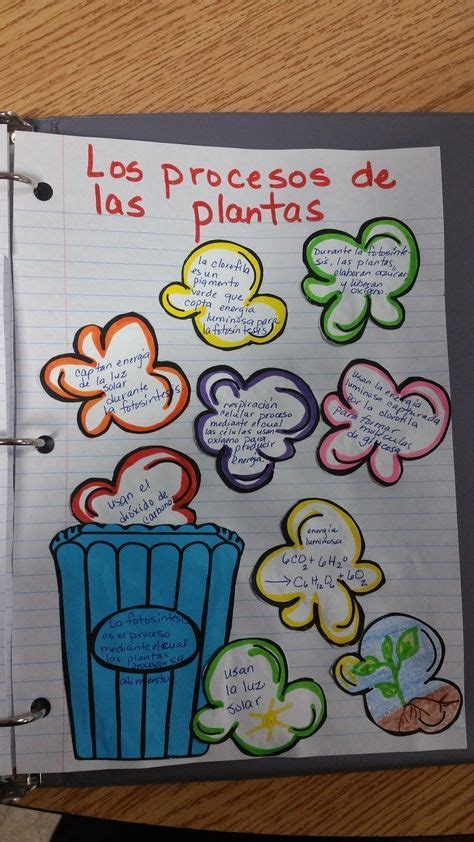 Los procesos de
las plantas
la clorofila
es un
pigmento
verde que
capta energía
luminosa para
la fotosíntesis
Durante la fotosínte-
sis, las plantas,
elaboran azúcar
y liberan
oxígeno.
captan energía
de la luz
solar
durante
la fotosíntesis
respiración
celular proceso
mediante el cual
las células usan
oxígeno para
producir
energía.
usan la energía
luminosa capturada
por la clorofila
para formar
moléculas
de glucosa
usan el
dióxido de
carbono
energía
luminosa
6CO2 + 6H2O
→ C6H12O6 + 6O2
La fotosíntesis
es el proceso
mediante el cual
las plantas
procesan su
alimento
usan
la luz
solar